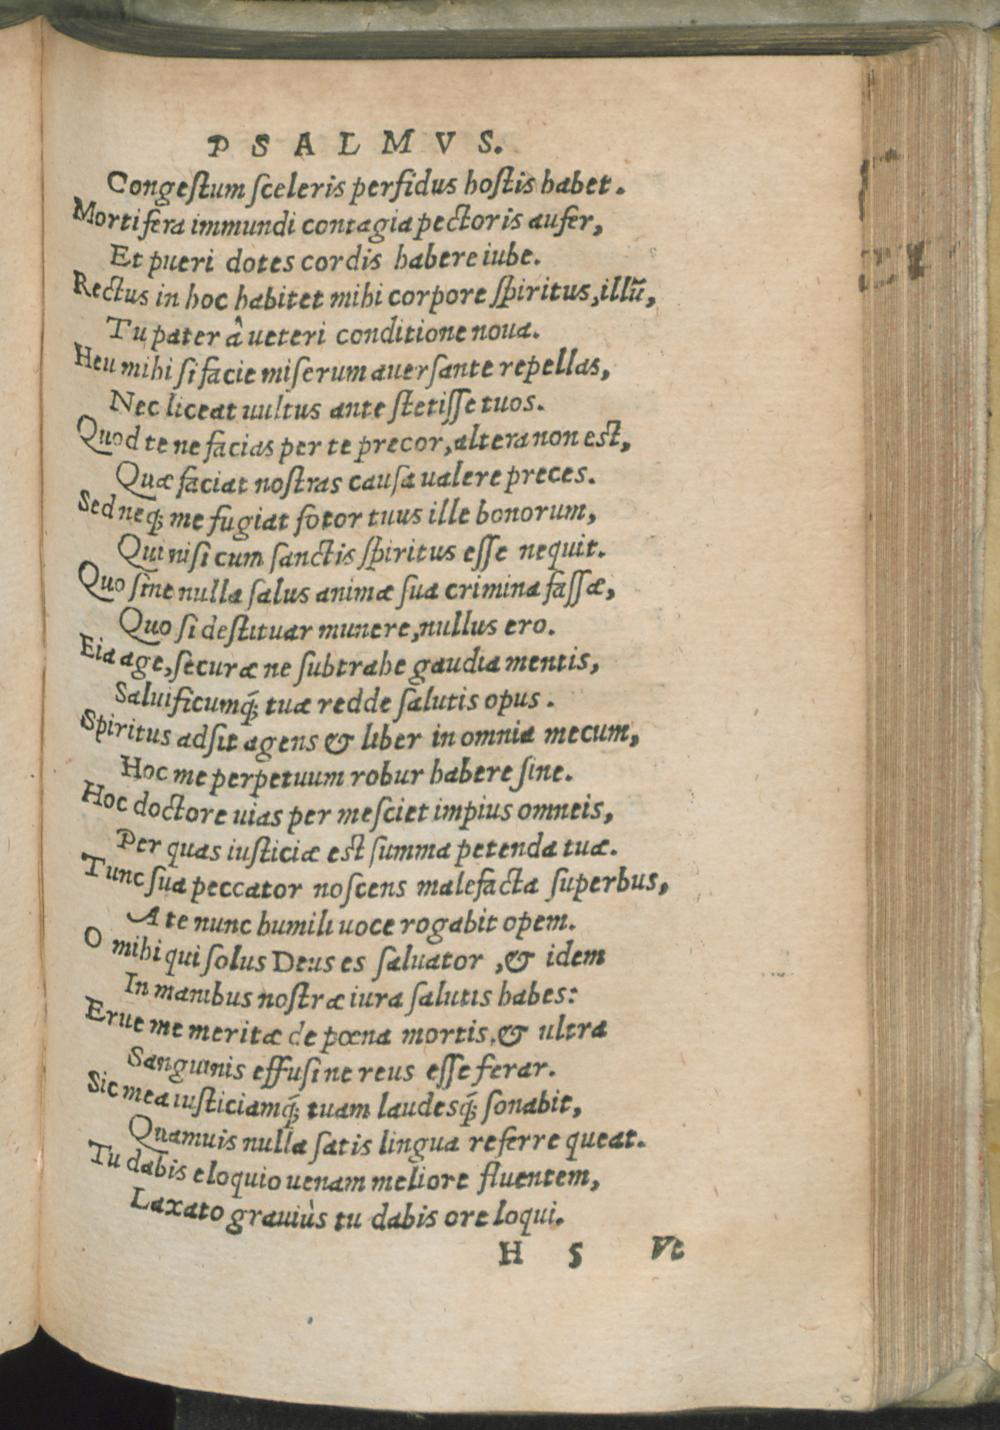 PSALMVS.
Congestum sceleris perfidus hostis habet.
Mortifera immundi contagia pectoris aufer,
Et pueri dotes cordis habere iube.
Rectus in hoc habitet mihi corpore spiritus, illū,
Tu pater â ueteri conditione noua.
Heu mihi si facie miserum auersante repellas,
Nec liceat uultus ante stetisse tuos.
Quod te ne facias per te precor, altera non est,
Quæ faciat nostras causa ualere preces.
Sed neq; me fugiat fotor tuus ille bonorum,
Qui nisi cum sanctis spiritus esse nequit.
Quo sine nulla salus animæ sua crimina fassæ,
Quo si destituar munere, nullus ero.
Eia age, securæ ne subtrahe gaudia mentis,
Saluificumq́; tuæ redde salutis opus.
Spiritus adsit agens & liber in omnia mecum,
Hoc me perpetuum robur habere sine.
Hoc doctore uias per me sciet impius omneis,
Per quas iusticiæ est summa petenda tuæ.
Tunc sua peccator noscens malefacta superbus,
A te nunc humili uoce rogabit opem.
O mihi qui solus Deus es saluator, & idem
In manibus nostræ iura salutis habes:
Erue me meritæ de pœna mortis, & ultra
Sanguinis effusi ne reus esse ferar.
Sic mea iusticiamq́; tuam laudesq́; sonabit,
Quamuis nulla satis lingua referre queat.
Tu dabis eloquio uenam meliore fluentem,
Laxato grauiùs tu dabis ore loqui.
H 5 Vt